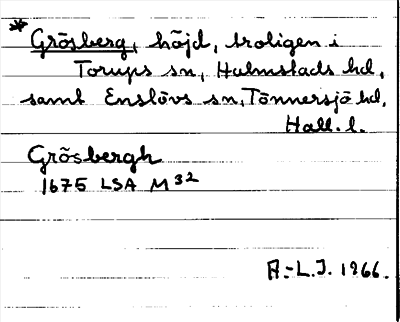 * Grösberg, höjd, troligen i
Torups sn, Halmstads hd,
samt Enslövs sn, Tönnersjö hd,
Hall. l.
Grösbergh
1675 LSA M 32
A.-L.J. 1966.